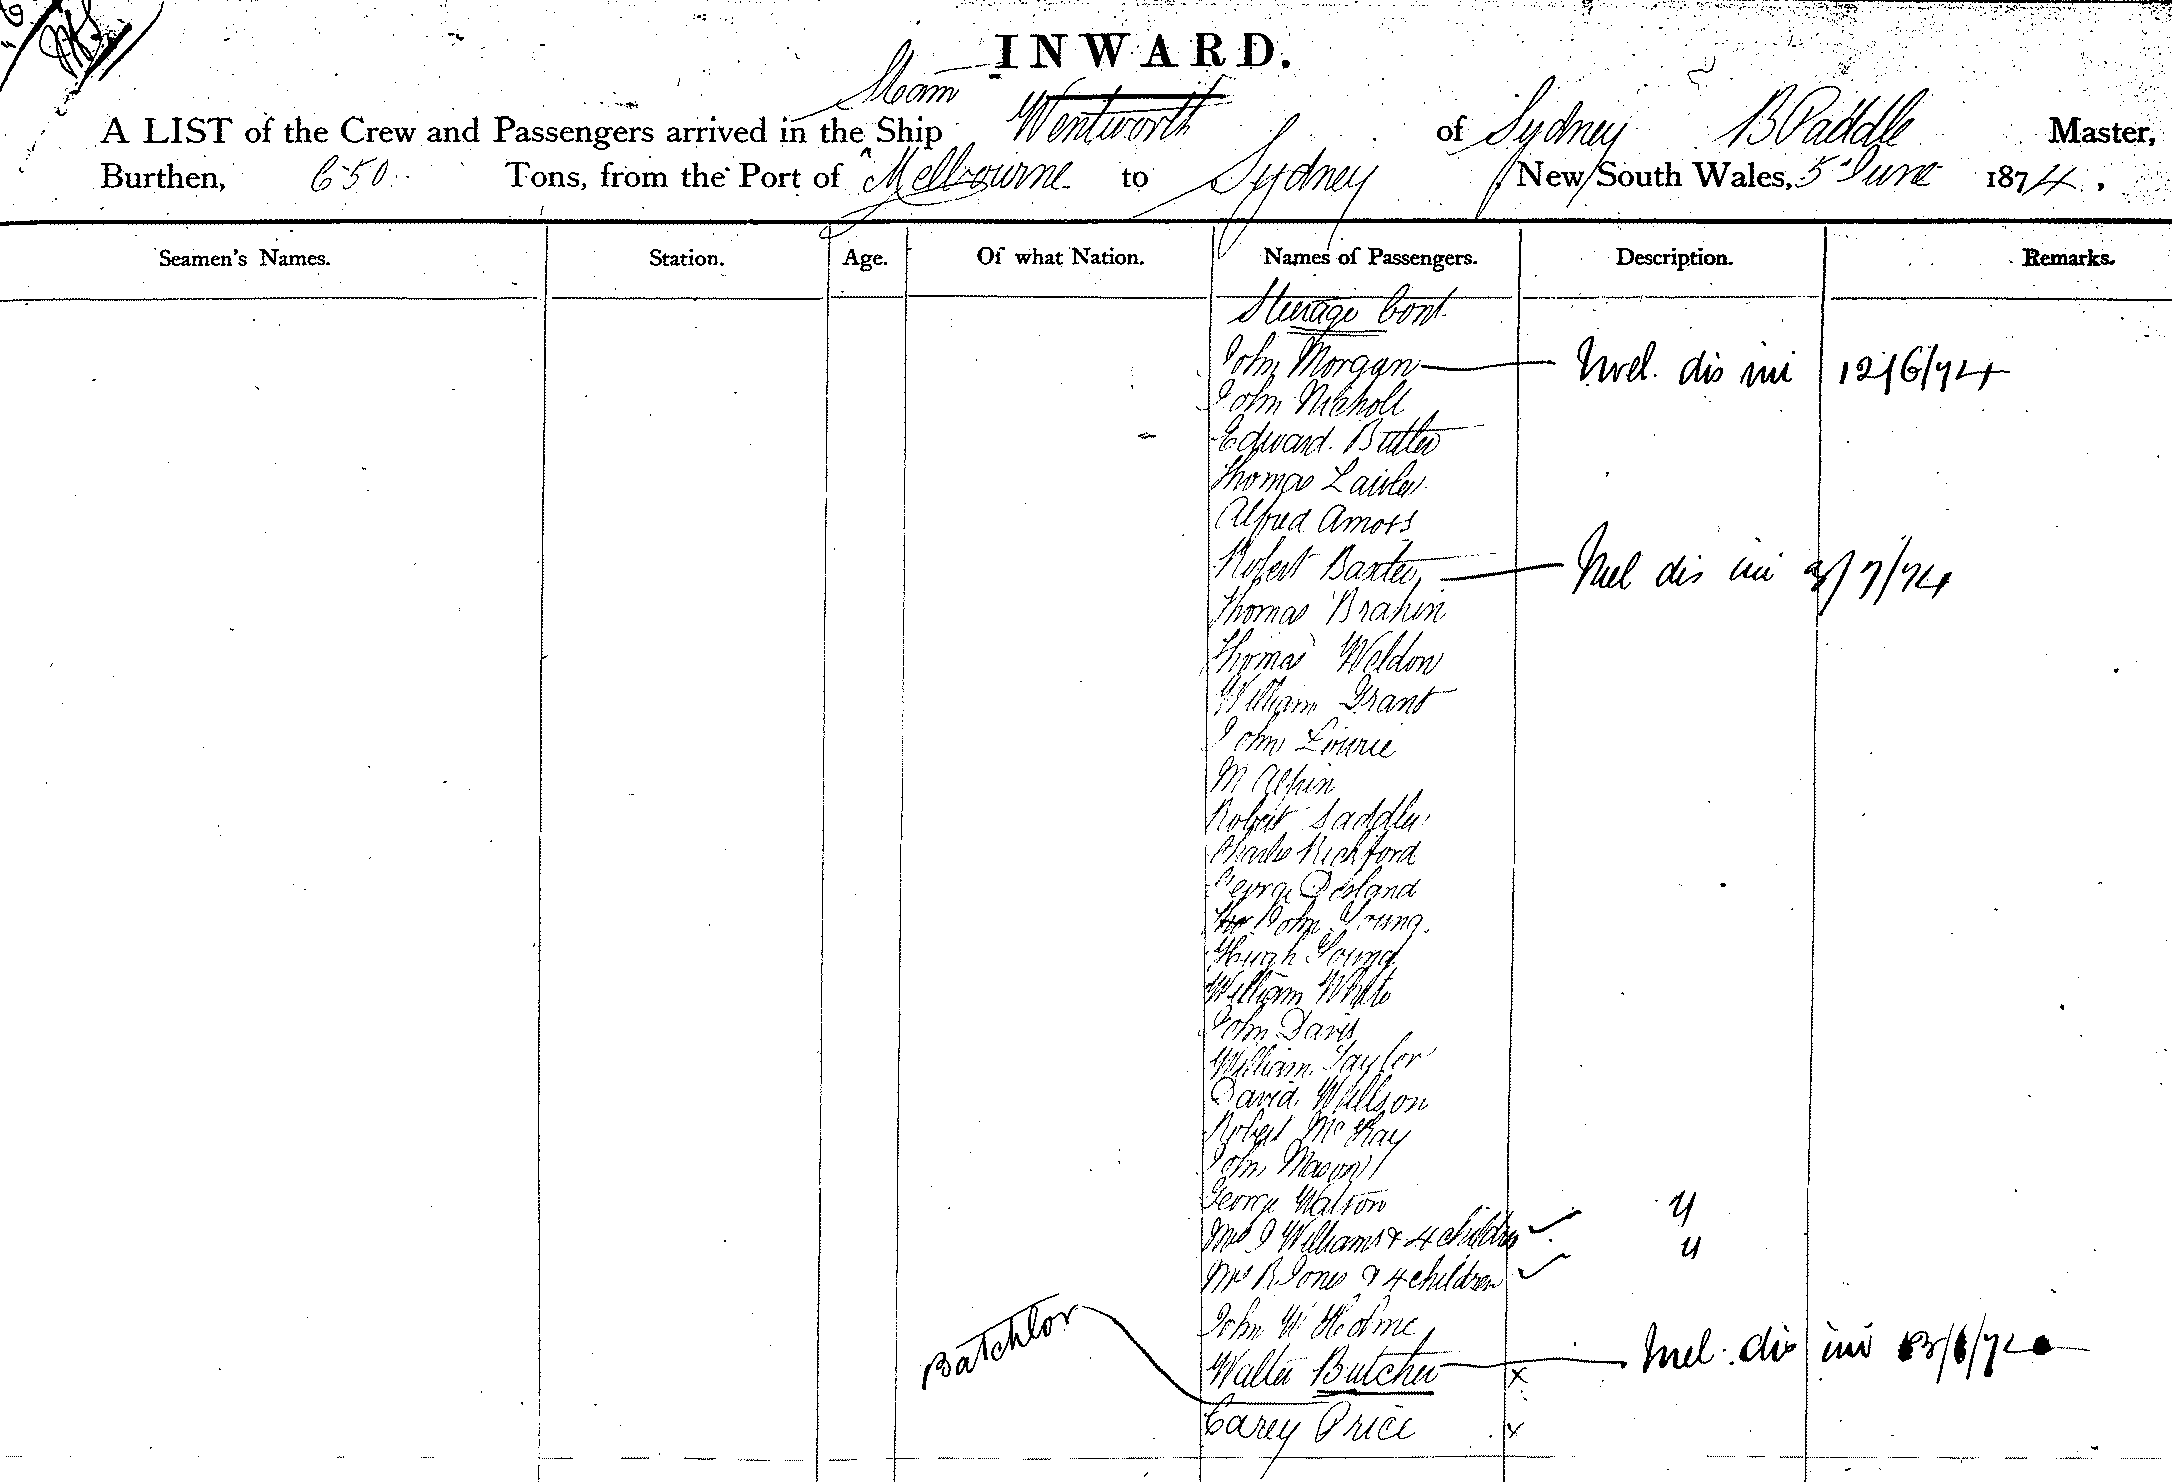 INWARD.
Steam
A LIST of the Crew and Passengers arrived in the Ship Wentworth of Sydney B Paddle Master,
Burthen, 650 Tons, from the Port of Melbourne to Sydney New South Wales, 5 June 1874.
Seamen's Names. Station. Age. Of what Nation. Names of Passengers. Description. Remarks.
Steerage Cont.
John Morgan Mel. dis 12/6/74
John Nicholl
Edward Butler
Thomas Lawler
Alfred Amoss
Robert Baxter Mel dis /7/74
Thomas Brahin
Thomas Weldon
William Grant
John Lourie
M Alpin
Robert Saddler
Charles Rickford
George Desland
John Young
Hugh Young
William White
John Davis
William Taylor
David Willson
Robert McKay
John Mason
George Watson
Mrs J Williams & 4 children
Mrs R Jones & 4 children
John W Holme
Batchlor
Walter Butcher x Mel. dis
Carey Price x